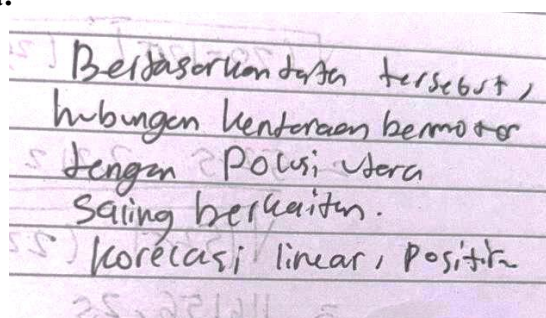 Berdasarkan data tersebut,
hubungan kendaraan bermotor
dengan Polusi udara
saling berkaitan.
Korelasi linear, Positif